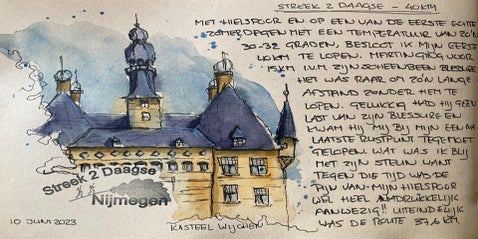 STREEK 2 DAAGSE - 40KM
MET HIELSPOOR EN OP EEN VAN DE EERSTE ECHTE
ZOMERDAGEN MET EEN TEMPERATUUR VAN ZO'N
30-32 GRADEN, BESLOOT IK MIJN EERSTE
40KM TE LOPEN. MARTIN GING VOOR
15KM I.V.M. ZIJN SCHEENBEEN BLESSURE
HET WAS RAAR OM ZO'N LANGE
AFSTAND ZONDER HEM TE
LOPEN. GELUKKIG HAD HIJ GEEN
LAST VAN ZIJN BLESSURE EN
KWAM HIJ MIJ BIJ MIJN EEN NA
LAATSTE RUSTPUNT TEGEMOET
GELOPEN. WAT WAS IK BLIJ
MET ZIJN STEUN WANT
TEGEN DIE TIJD WAS DE
PIJN VAN MIJN HIELSPOOR
WEL HEEL NADRUKKELIJK
AANWEZIG!! UITEINDELIJK
WAS DE ROUTE 37,6 KM.
Streek 2 Daagse
Nijmegen
10 JUNI 2023
KASTEEL WIJCHEN